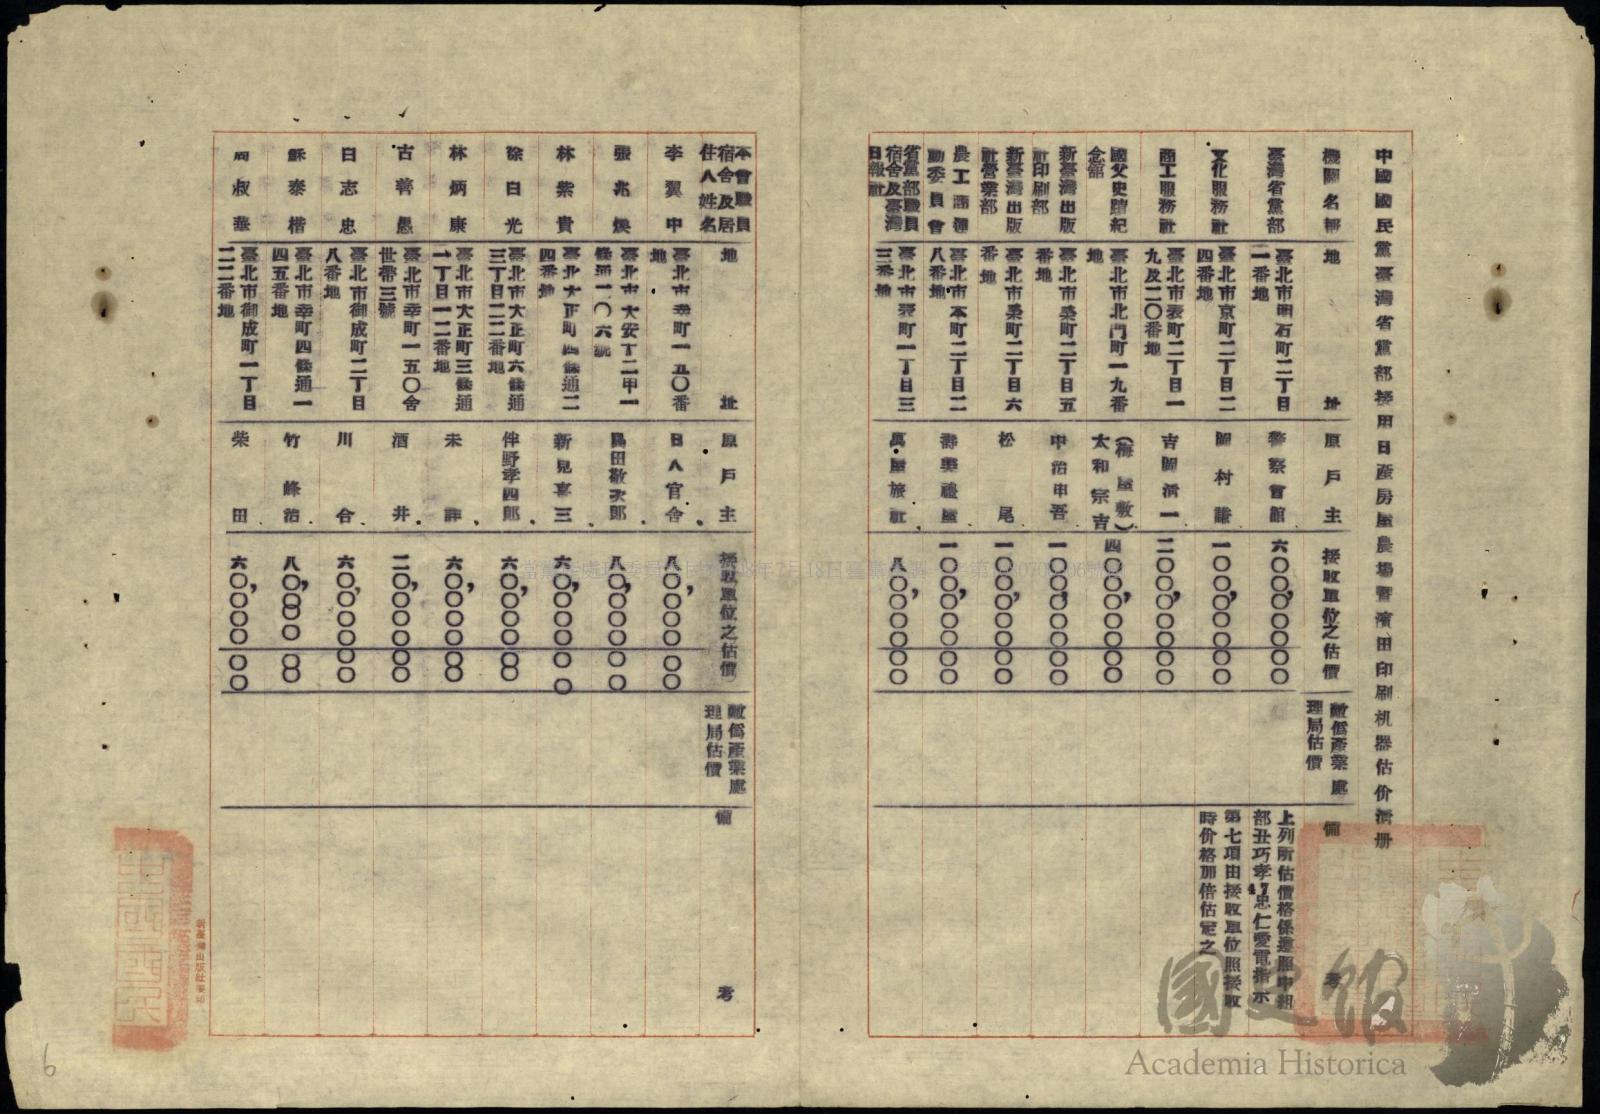 中國國民黨臺灣省黨部接用日產房屋農場暨濱田印刷机器估价清册
機關名稱
地址
原戶主
接收單位之估價
敵僞產業處理局估價
備考
臺灣省黨部
臺北市明石町二丁目一番地
警察會館
六〇〇,〇〇〇〇〇
上列所估價格係遵照中組
部丑巧孝47忠仁愛電指示
第七項由接收單位照接收
時价格加倍估定之
文化服務社
臺北市京町二丁目二四番地
岡村謙
一〇〇,〇〇〇〇〇
商工服務社
臺北市表町二丁目一九及二〇番地
吉岡清一
二〇〇,〇〇〇〇〇
國父史蹟紀念館
臺北市北門町一九番地
(梅屋敷)
太和宗吉
四〇〇,〇〇〇〇〇
新臺灣出版社印刷部
臺北市榮町二丁目五番地
中治申吾
一〇〇,〇〇〇〇〇
新臺灣出版社營業部
臺北市榮町二丁目六番地
松尾
一〇〇,〇〇〇〇〇
農工商運動委員會
臺北市本町二丁目二八番地
壽美禮屋
一〇〇,〇〇〇〇〇
省黨部職員宿舍及臺灣日報社
臺北市表町一丁目三三番地
萬屋旅社
八〇,〇〇〇〇〇
本會職員宿舍及居住人姓名
地址
原戶主
接收單位之估價
敵僞產業處理局估價
備考
李翼中
臺北市幸町一五〇番地
日人官舍
八〇,〇〇〇〇〇
張兆煥
臺北市大安丁二甲一條通一〇六號
昌田敬次郎
八〇,〇〇〇〇〇
林紫貴
臺北大正町四條通二四番地
新見喜三
六〇,〇〇〇〇〇
徐白光
臺北市大正町六條通三丁目二二番地
伴野孝四郎
六〇,〇〇〇〇〇
林炳康
臺北市大正町三條通一丁目一二番地
未詳
六〇,〇〇〇〇〇
古善愚
臺北市幸町一五〇舍世帶三號
酒井
二〇,〇〇〇〇〇
白志忠
臺北市御成町二丁目八番地
川合
六〇,〇〇〇〇〇
蘇泰楷
臺北市幸町四條通一四五番地
竹峰治
八〇,〇〇〇〇〇
周叔華
臺北市御成町一丁目二二番地
柴田
六〇,〇〇〇〇〇
新臺灣出版社承印
6
國史館
Academia Historica